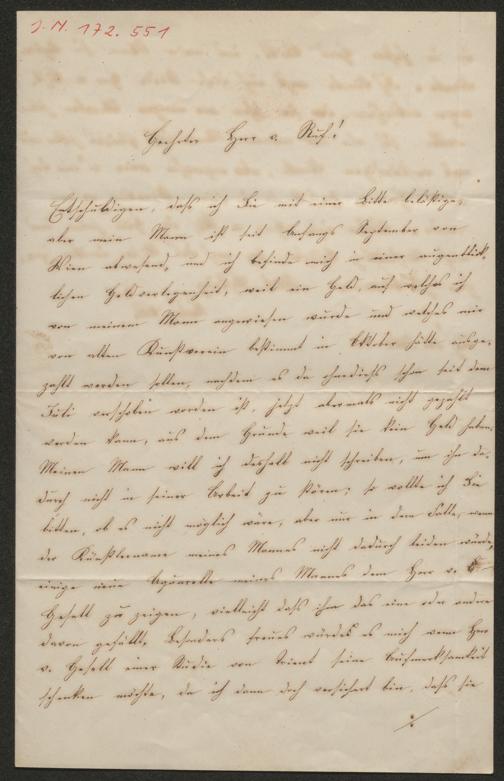 J. N. 172.551
Geehrter Herr v. Ruf!
Entschuldigen, daß ich Sie mit einer Bitte belästige,
aber mein Mann ist seit Anfangs September von
Wien abwesend, und ich befinde mich in einer augenblick-
lichen Geldverlegenheit, weil ein Geld, auf welches ich
von meinem Mann angewiesen wurde und welches mir
von alten Kunstverein bestimmt in Oktober hätte ausge-
zahlt werden sollen, nachdem es da ohnedieß schon seit dem
Juli verschoben worden ist, jetzt abermals nicht gezahlt
werden kann, aus dem Grunde weil sie kein Geld haben.
Meinen Mann will ich deshalb nicht schreiben, um ihn da-
durch nicht in seiner Arbeit zu stören; so wollte ich Sie
bitten, ob es nicht möglich wäre, aber nur in dem Falle, wenn
der Künstlername meines Mannes nicht dadurch leiden würde,
einige neue Aquarelle meines Manns dem Herr v.
Gsell zu zeigen, vielleicht daß ihm das eine oder andere
davon gefällt, besonders freuen würde es mich wenn Herr
v. Gsell einer Studie von Trient seine Aufmerksamkeit
schenken möchte, da ich dann doch versichert bin, daß sie